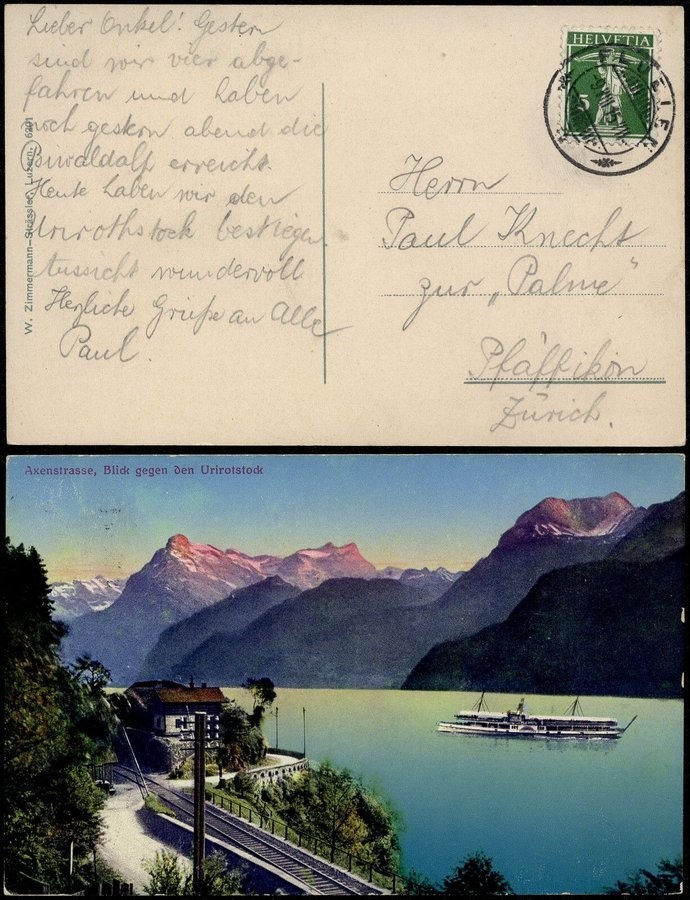 Lieber Onkel! Gestern
sind wir vier abge-
fahren und haben
noch gestern abend die
Biwaldalp erreicht.
Heute haben wir den
Urirothstock bestiegen
Aussicht wundervoll
Herzliche Grüße an Alle
Paul.
W. Zimmermann-Strässler, Luzern. 6201
HELVETIA
5
Herrn
Paul Knecht
zur „Palme"
Pfäffikon
Zürich.
Axenstrasse, Blick gegen den Urirotstock